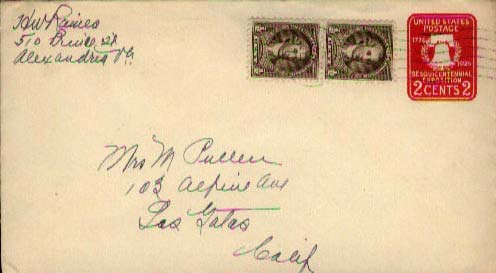 H W Raines
510 Bruce St
Alexandria Va
UNITED STATES
POSTAGE
1776 1926
SESQUICENTENNIAL
EXPOSITION
2 CENTS 2
Mrs M Pullen
103 Alpine Ave
Los Gatos
Calif